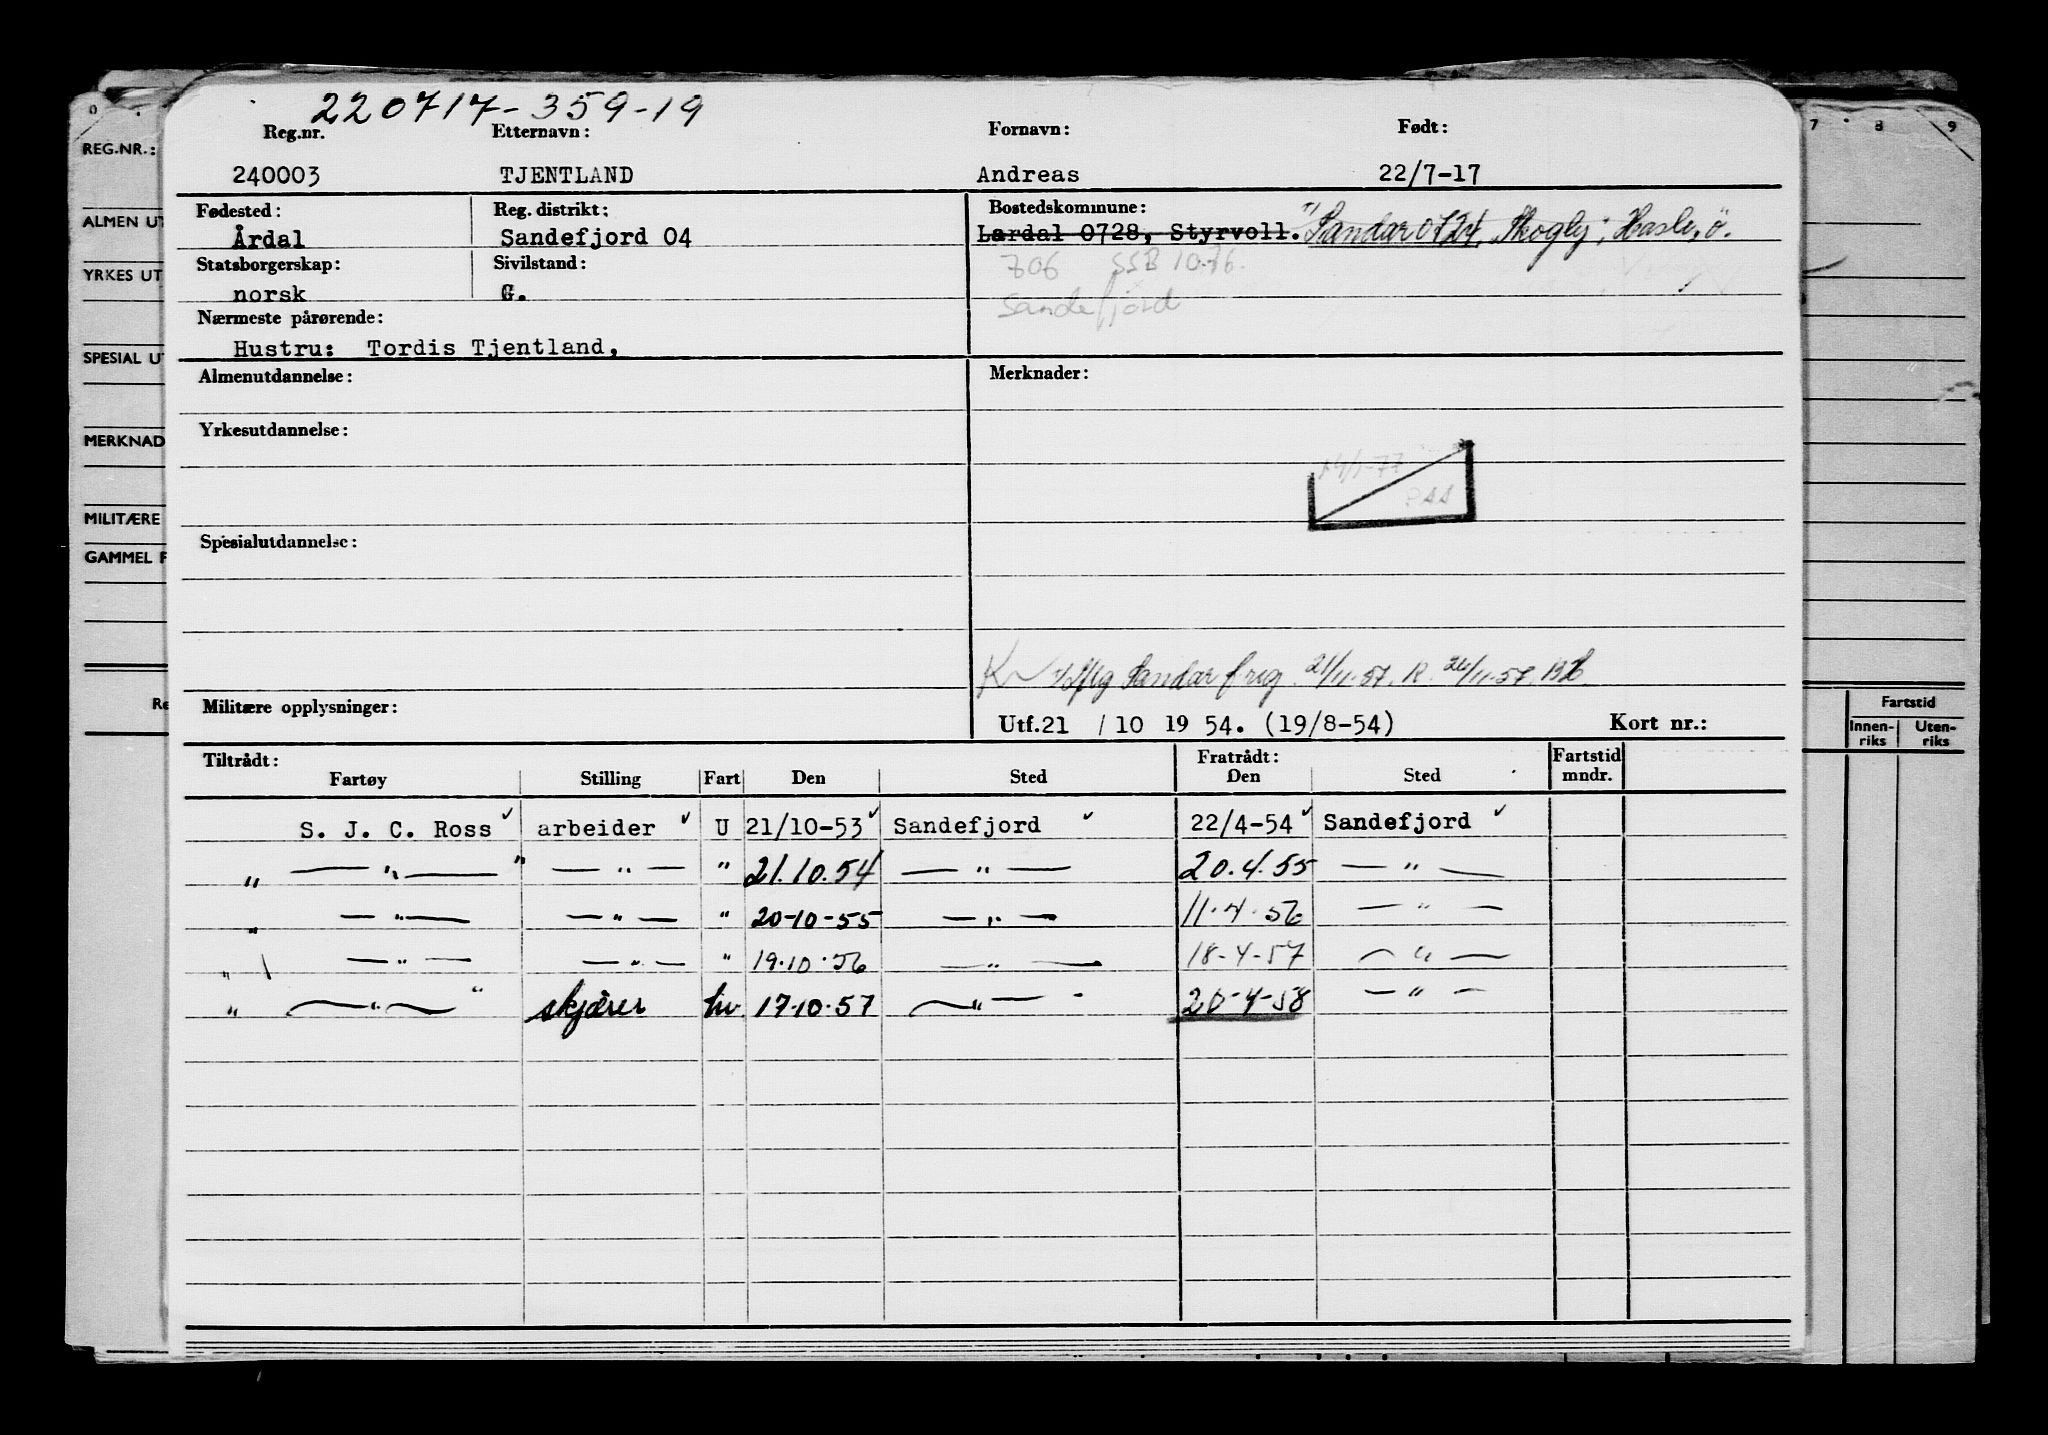 220717-359-19
Reg.nr. Etternavn: Fornavn: Født:
240003 TJENTLAND Andreas 22/7-17
Fødested: Reg. distrikt: Bostedskommune:
Årdal Sandefjord 04 Lardal 0728, Styrvoll. Sandar 0724, Skogly, Hasle, ö.
Statsborgerskap: Sivilstand: 706 SSB 10.76.
norsk G. Sandefjord
Nærmeste pårørende:
Hustru: Tordis Tjentland,
Almenutdannelse: Merknader:
Yrkesutdannelse:
Spesialutdannelse:
Sandar f reg. 21/11.57. R. 26/11.57.
Militære opplysninger: Utf.21 / 10 19 54. (19/8-54) Kort nr.:
Tiltrådt: Fratrådt: Fartstid
Fartøy Stilling Fart Den Sted Den Sted mndr.
S. J. C. Ross arbeider U 21/10-53 Sandefjord 22/4-54 Sandefjord
" — " — " — " — " 21.10.54 — " — 20.4.55 — " —
" — " — — " — " 20-10-55 — " — 11.4.56 — " —
" — " — — " — " 19.10.56 — " — 18-4-57 — " —
" — " — " skjærer hv 17-10-57 — " — 20-4-58 — " —
REG.NR.:
ALMEN UT
YRKES UT
SPESIAL UT
MERKNAD
MILITÆRE
GAMMEL F
Re
7 8 9
Fartstid
Innen-riks Uten-riks